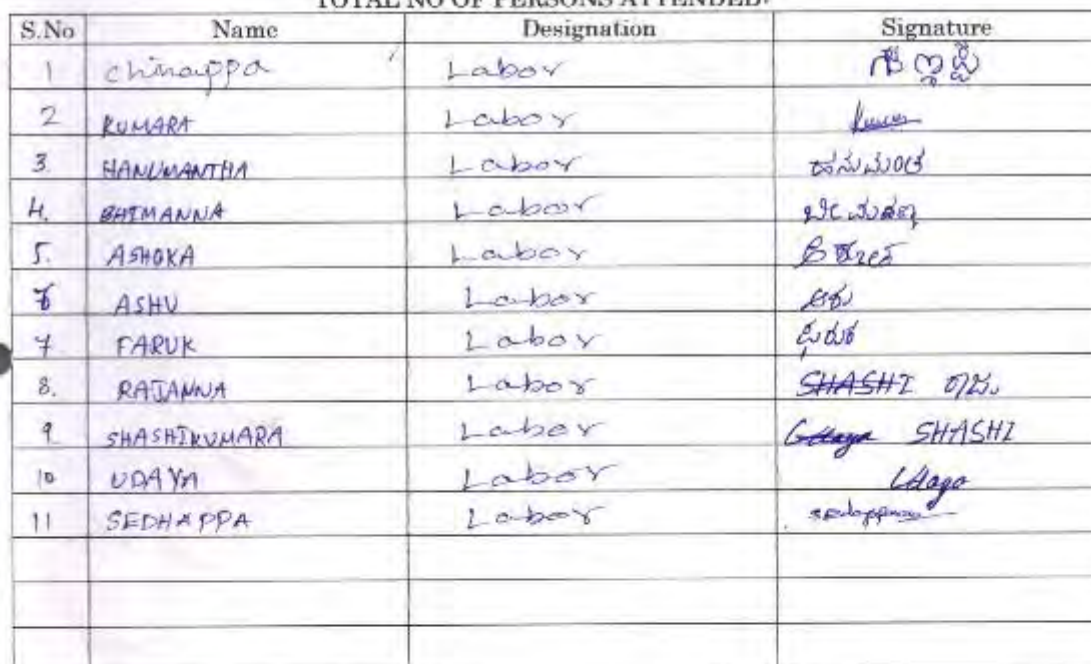 TOTAL NO OF PERSONS ATTENDED:
S.No Name Designation Signature
1 chinappa Labor
2 KUMARA Labor
3. HANUMANTHA Labor ಹನುಮಂತ
4. BHIMANNA Labor
5. ASHOKA Labor
6 ASHU Labor ಆಶು
7 FARUK Labor
8. RAJANNA Labor SHASHI ರಾಜು
9 SHASHIKUMARA Labor Udaya SHASHI
10 UDAYA Labor Udaya
11 SEDHAPPA Labor